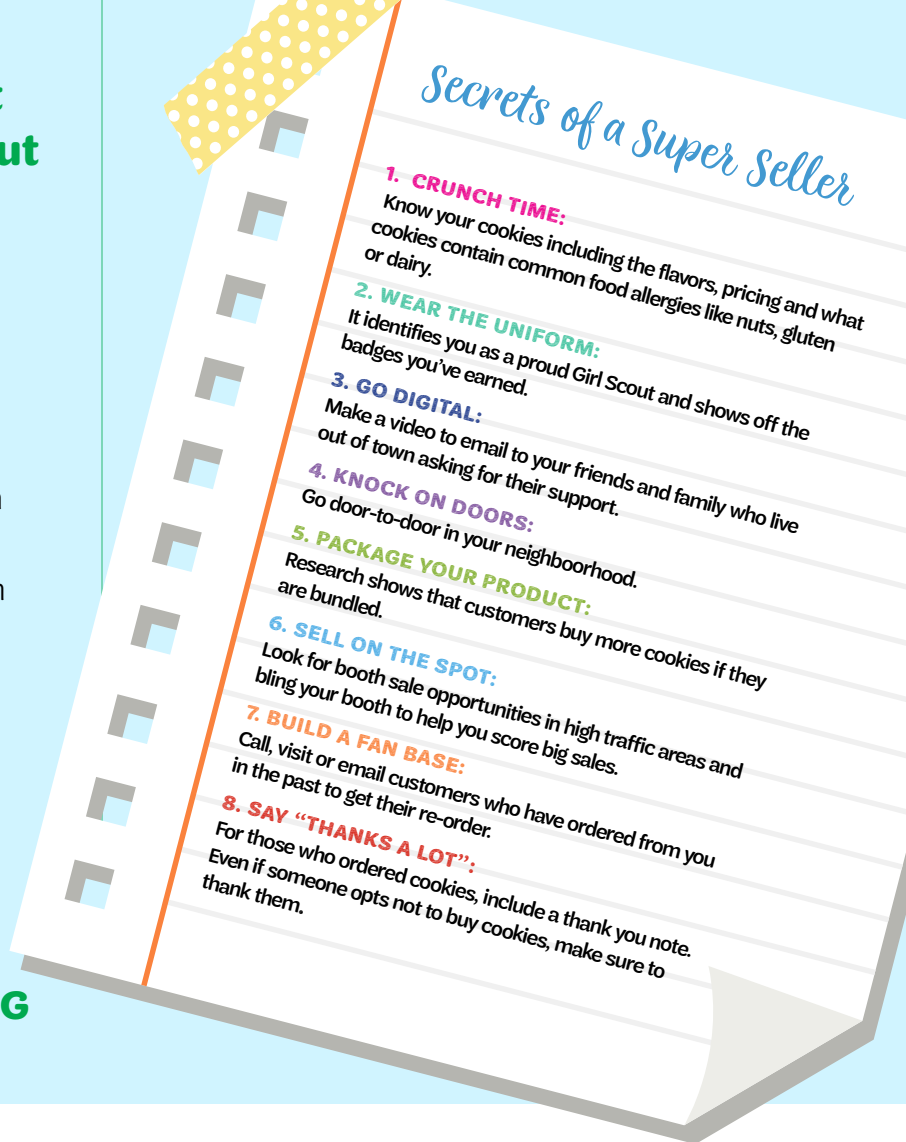 ut
G
Secrets of a Super Seller
1. CRUNCH TIME:
Know your cookies including the flavors, pricing and what
cookies contain common food allergies like nuts, gluten
or dairy.
2. WEAR THE UNIFORM:
It identifies you as a proud Girl Scout and shows off the
badges you’ve earned.
3. GO DIGITAL:
Make a video to email to your friends and family who live
out of town asking for their support.
4. KNOCK ON DOORS:
Go door-to-door in your neighboorhood.
5. PACKAGE YOUR PRODUCT:
Research shows that customers buy more cookies if they
are bundled.
6. SELL ON THE SPOT:
Look for booth sale opportunities in high traffic areas and
bling your booth to help you score big sales.
7. BUILD A FAN BASE:
Call, visit or email customers who have ordered from you
in the past to get their re-order.
8. SAY “THANKS A LOT”:
For those who ordered cookies, include a thank you note.
Even if someone opts not to buy cookies, make sure to
thank them.